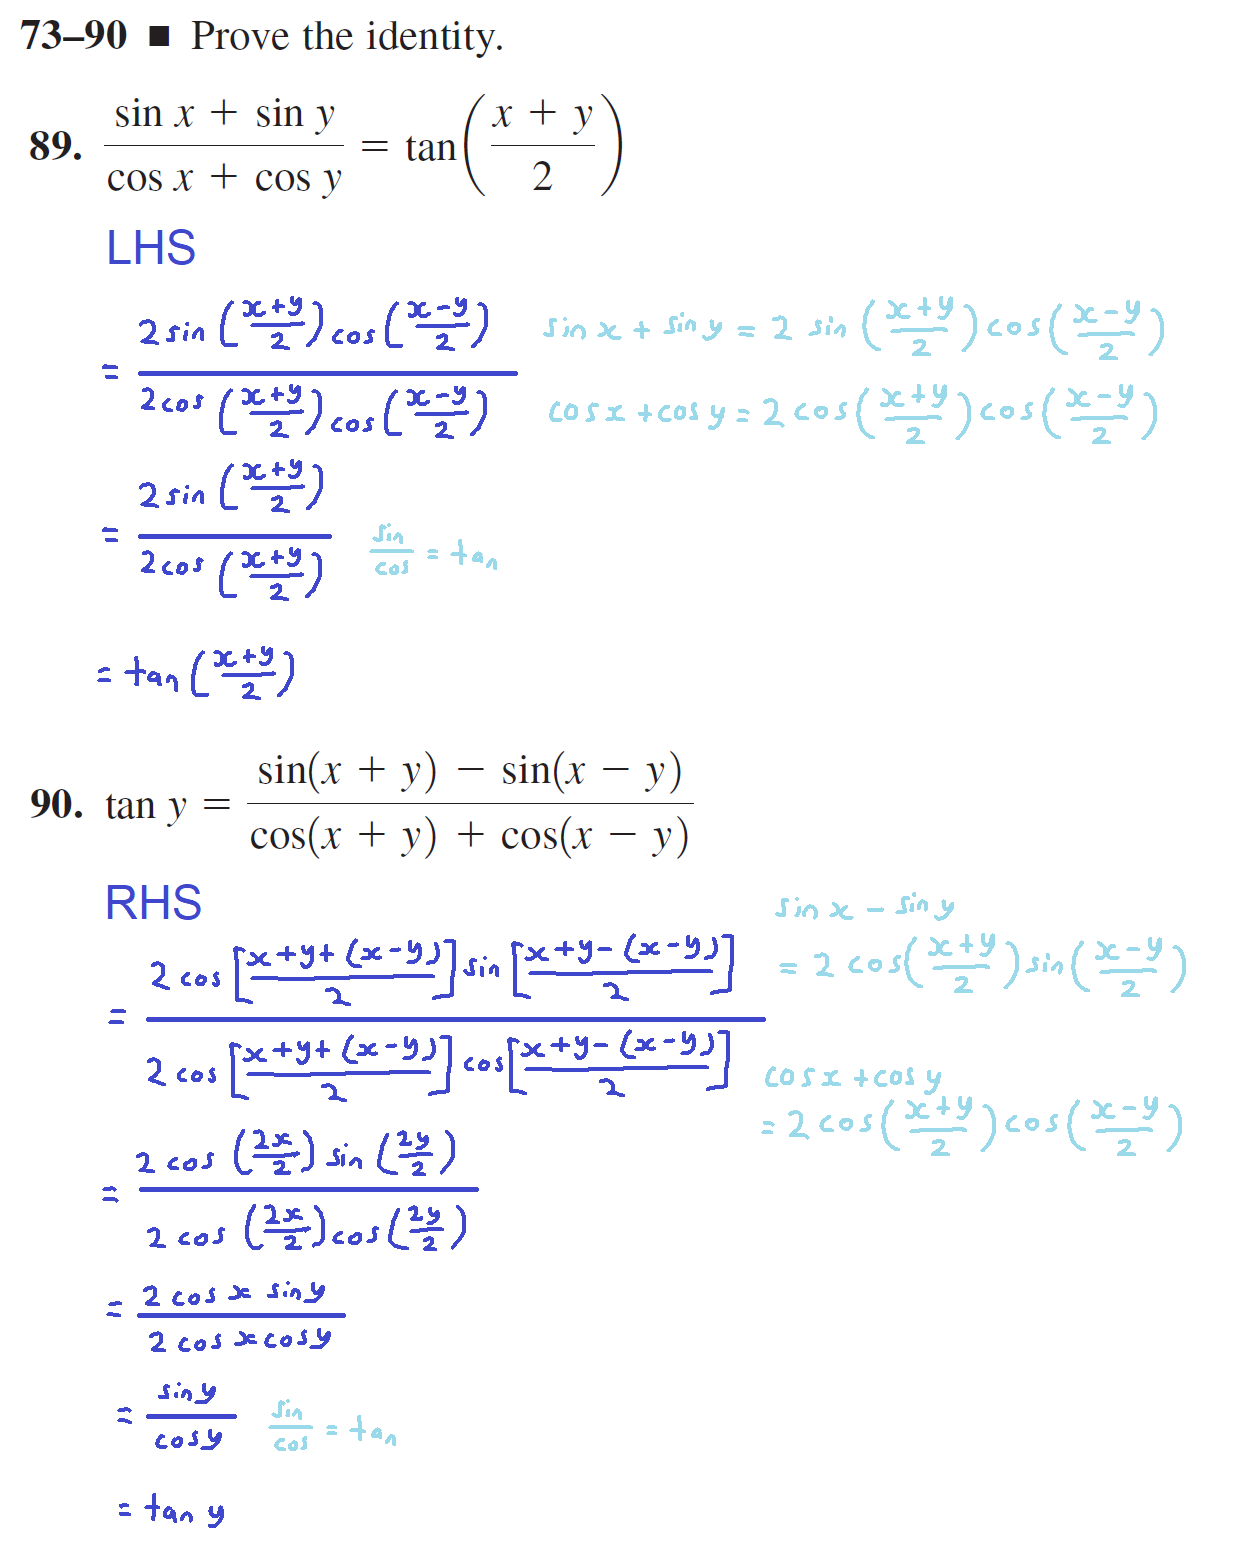 73–90 ■ Prove the identity.
89. (sin x + sin y)/(cos x + cos y) = tan((x + y)/2)
LHS
= (2 sin ((x+y)/2) cos ((x-y)/2))/(2 cos ((x+y)/2) cos ((x-y)/2))
sin x + sin y = 2 sin ((x+y)/2) cos ((x-y)/2)
cos x + cos y = 2 cos ((x+y)/2) cos ((x-y)/2)
= (2 sin ((x+y)/2))/(2 cos ((x+y)/2))
sin/cos = tan
= tan ((x+y)/2)
90. tan y = (sin(x + y) − sin(x − y))/(cos(x + y) + cos(x − y))
RHS
= (2 cos [(x+y+(x-y))/2] sin [(x+y-(x-y))/2])/(2 cos [(x+y+(x-y))/2] cos [(x+y-(x-y))/2])
sin x - sin y
= 2 cos ((x+y)/2) sin ((x-y)/2)
cos x + cos y
= 2 cos ((x+y)/2) cos ((x-y)/2)
= (2 cos (2x/2) sin (2y/2))/(2 cos (2x/2) cos (2y/2))
= (2 cos x sin y)/(2 cos x cos y)
= sin y/cos y
sin/cos = tan
= tan y